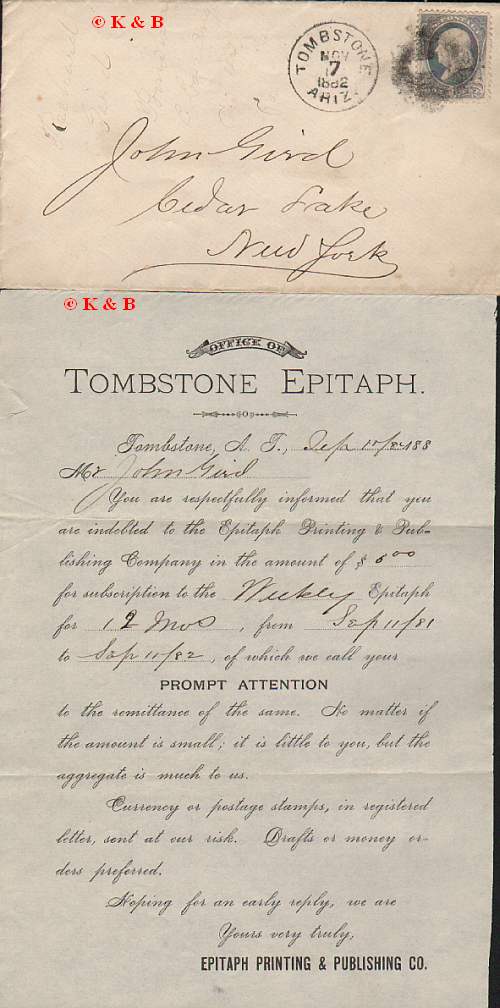 © K & B
TOMBSTONE
NOV
7
1882
ARIZ.
John Gird
Cedar Lake
New York
© K & B
OFFICE OF
TOMBSTONE EPITAPH.
Tombstone, A. T., Sep 188
Mr John Gird
You are respectfully informed that you
are indebted to the Epitaph Printing & Pub-
lishing Company in the amount of $ 5 00
for subscription to the Weekly Epitaph
for 12 Mos, from Sep 11/81
to Sep 11/82, of which we call your
PROMPT ATTENTION
to the remittance of the same. No matter if
the amount is small; it is little to you, but the
aggregate is much to us.
Currency or postage stamps, in registered
letter, sent at our risk. Drafts or money or-
ders preferred.
Hoping for an early reply, we are
Yours very truly,
EPITAPH PRINTING & PUBLISHING CO.